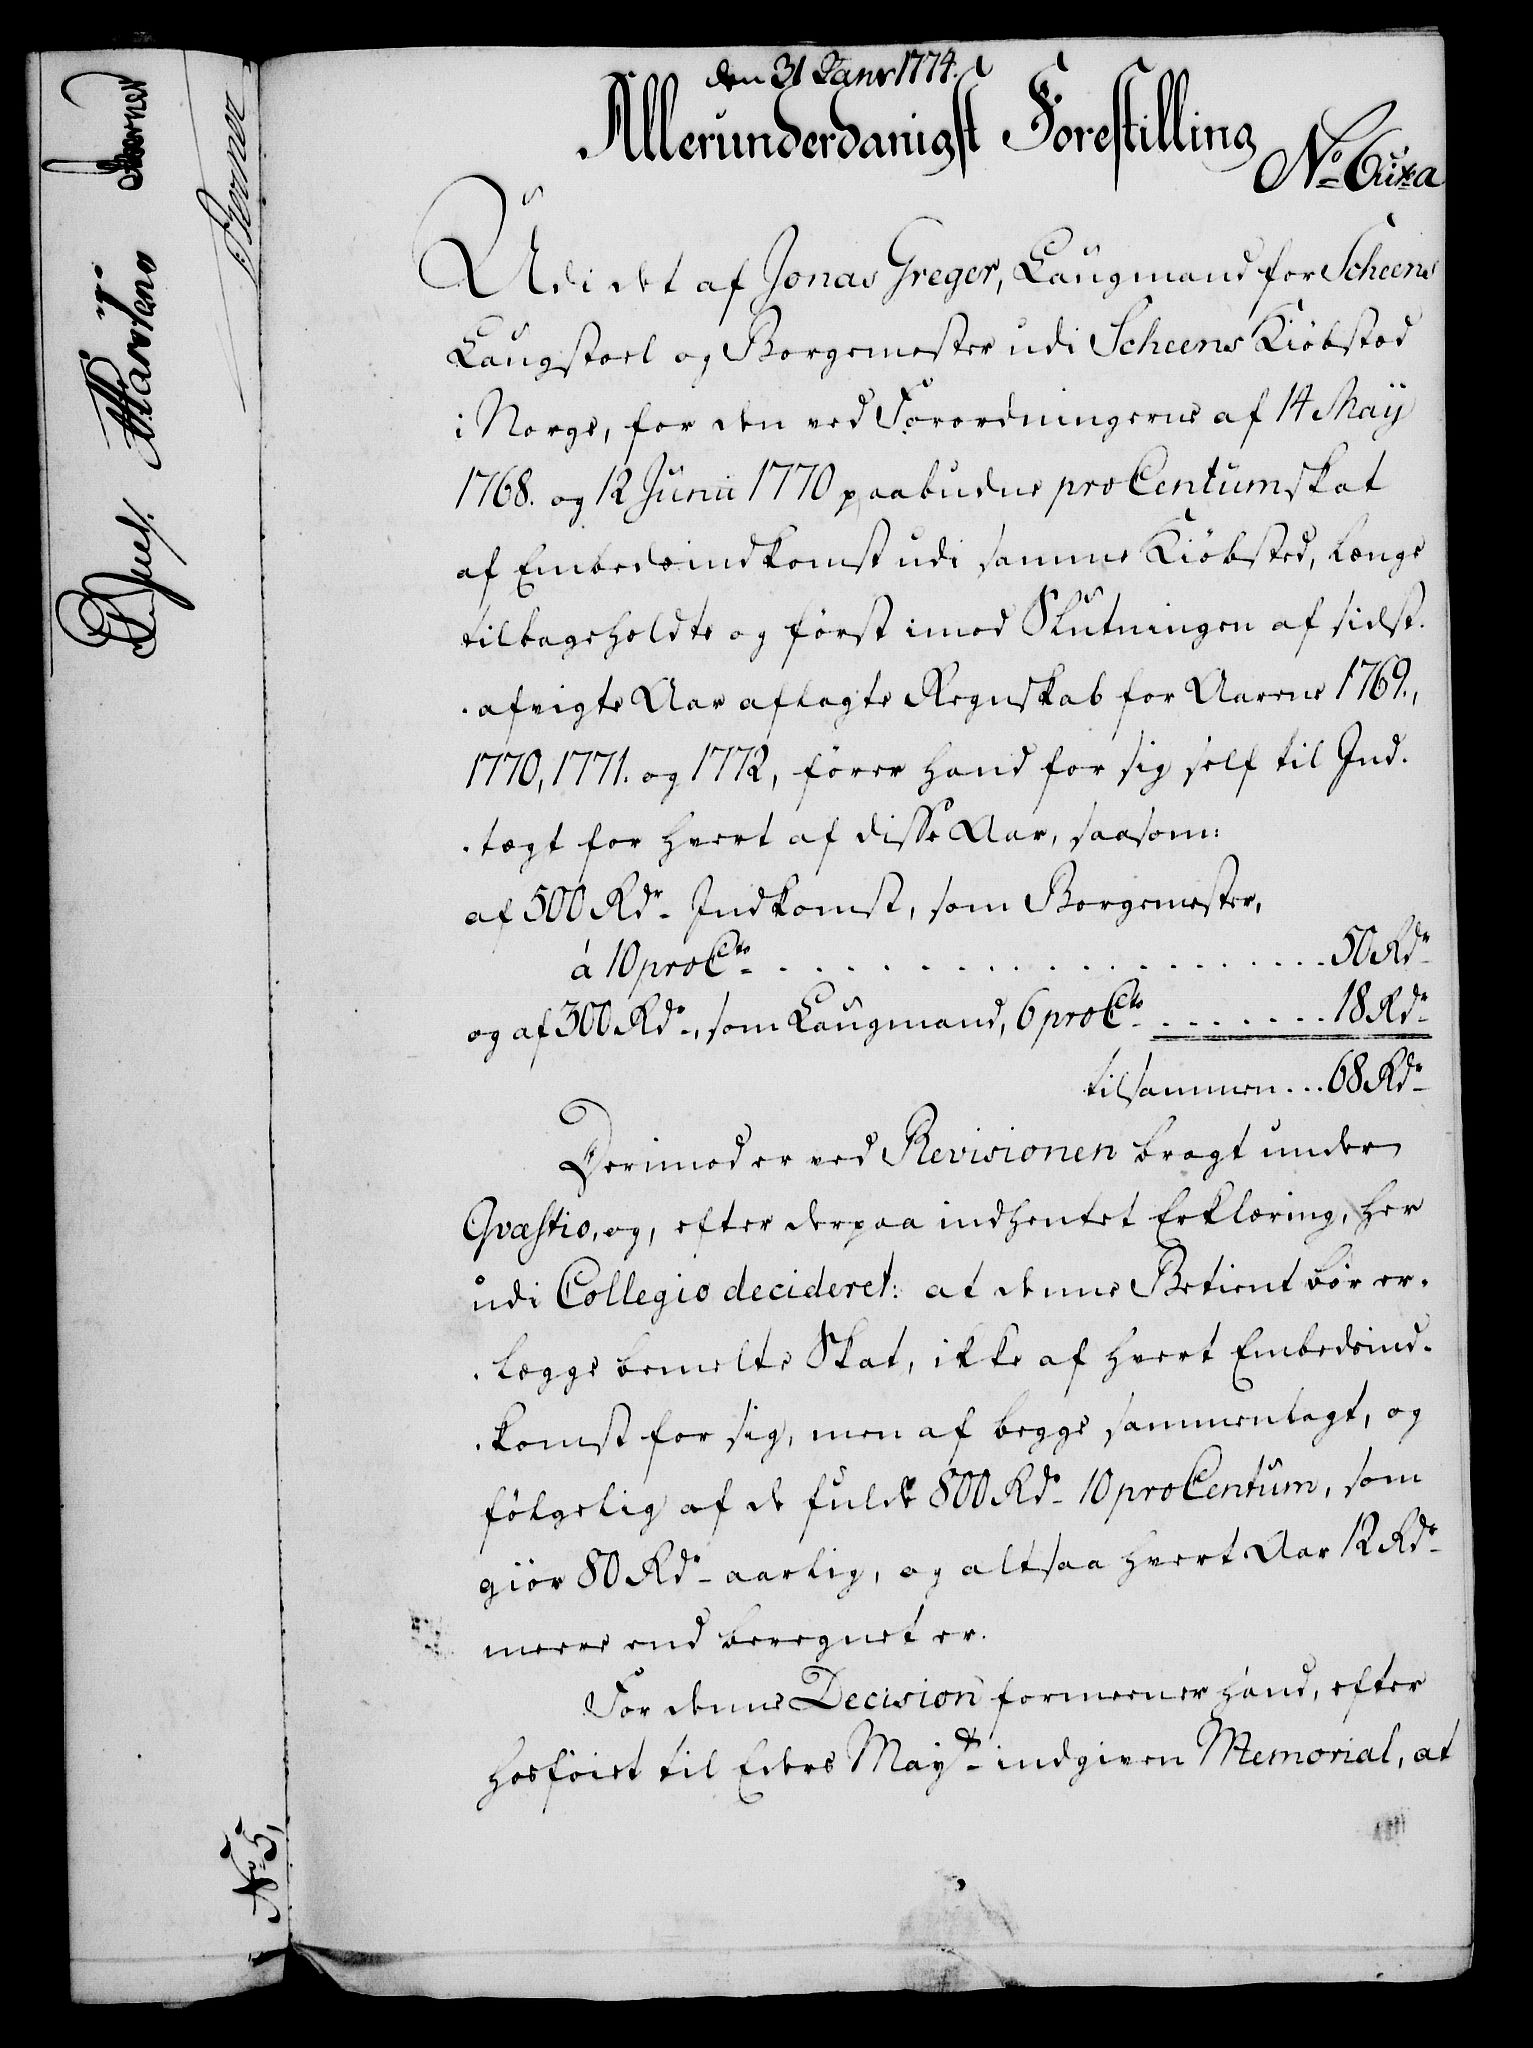 den 31 Janr 1774.
Allerunderdanigst Forestilling
Udi det af Jonas Greger, Laugmand for Scheens
Laugstoel og Borgemester udi Scheens Kiöbsted
i Norge, for den ved Forordningerne af 14 May
1768. og 12 Junii 1770 paabudne pro Centum skat
af Embedsindkomst udi samme Kiöbsted, længe
tilbageholdte og först imod Slutningen af sidst-
-afvigte Aar aflagte Regnskab for Aarene 1769.,
1770, 1771. og 1772, förer hand for sig self til Ind-
-tægt for hvert af disse Aar, saasom:
af 500 Rdr. Indkomst, som Borgemester,
á 10 pro Cto. . . . . . . . . . . . . . . . . . 50 Rdr.
og af 300 Rdr., som Laugmand, 6 pro Cto. . . . . . . . 18 Rdr.
tilsammen . . . 68 Rdr.
Derimod er ved Revisionen bragt under
Qvæstio, og, efter derpaa indhentet Erklæring, her
udi Collegio decideret: at denne Betient bör er-
-lægge bemelte Skat, ikke af hvert Embedsind-
-komst for sig, men af begge sammenlagt, og
fölgelig af de fulde 800 Rdr. 10 pro Centum, som
giör 80 Rdr. aarlig, og altsaa hvert Aar 12 Rdr.
meere end beregnet er.
For denne Decision formeener hand, efter
hosföiet til Eders Mayt. indgiven Memorial, at
No. 5,